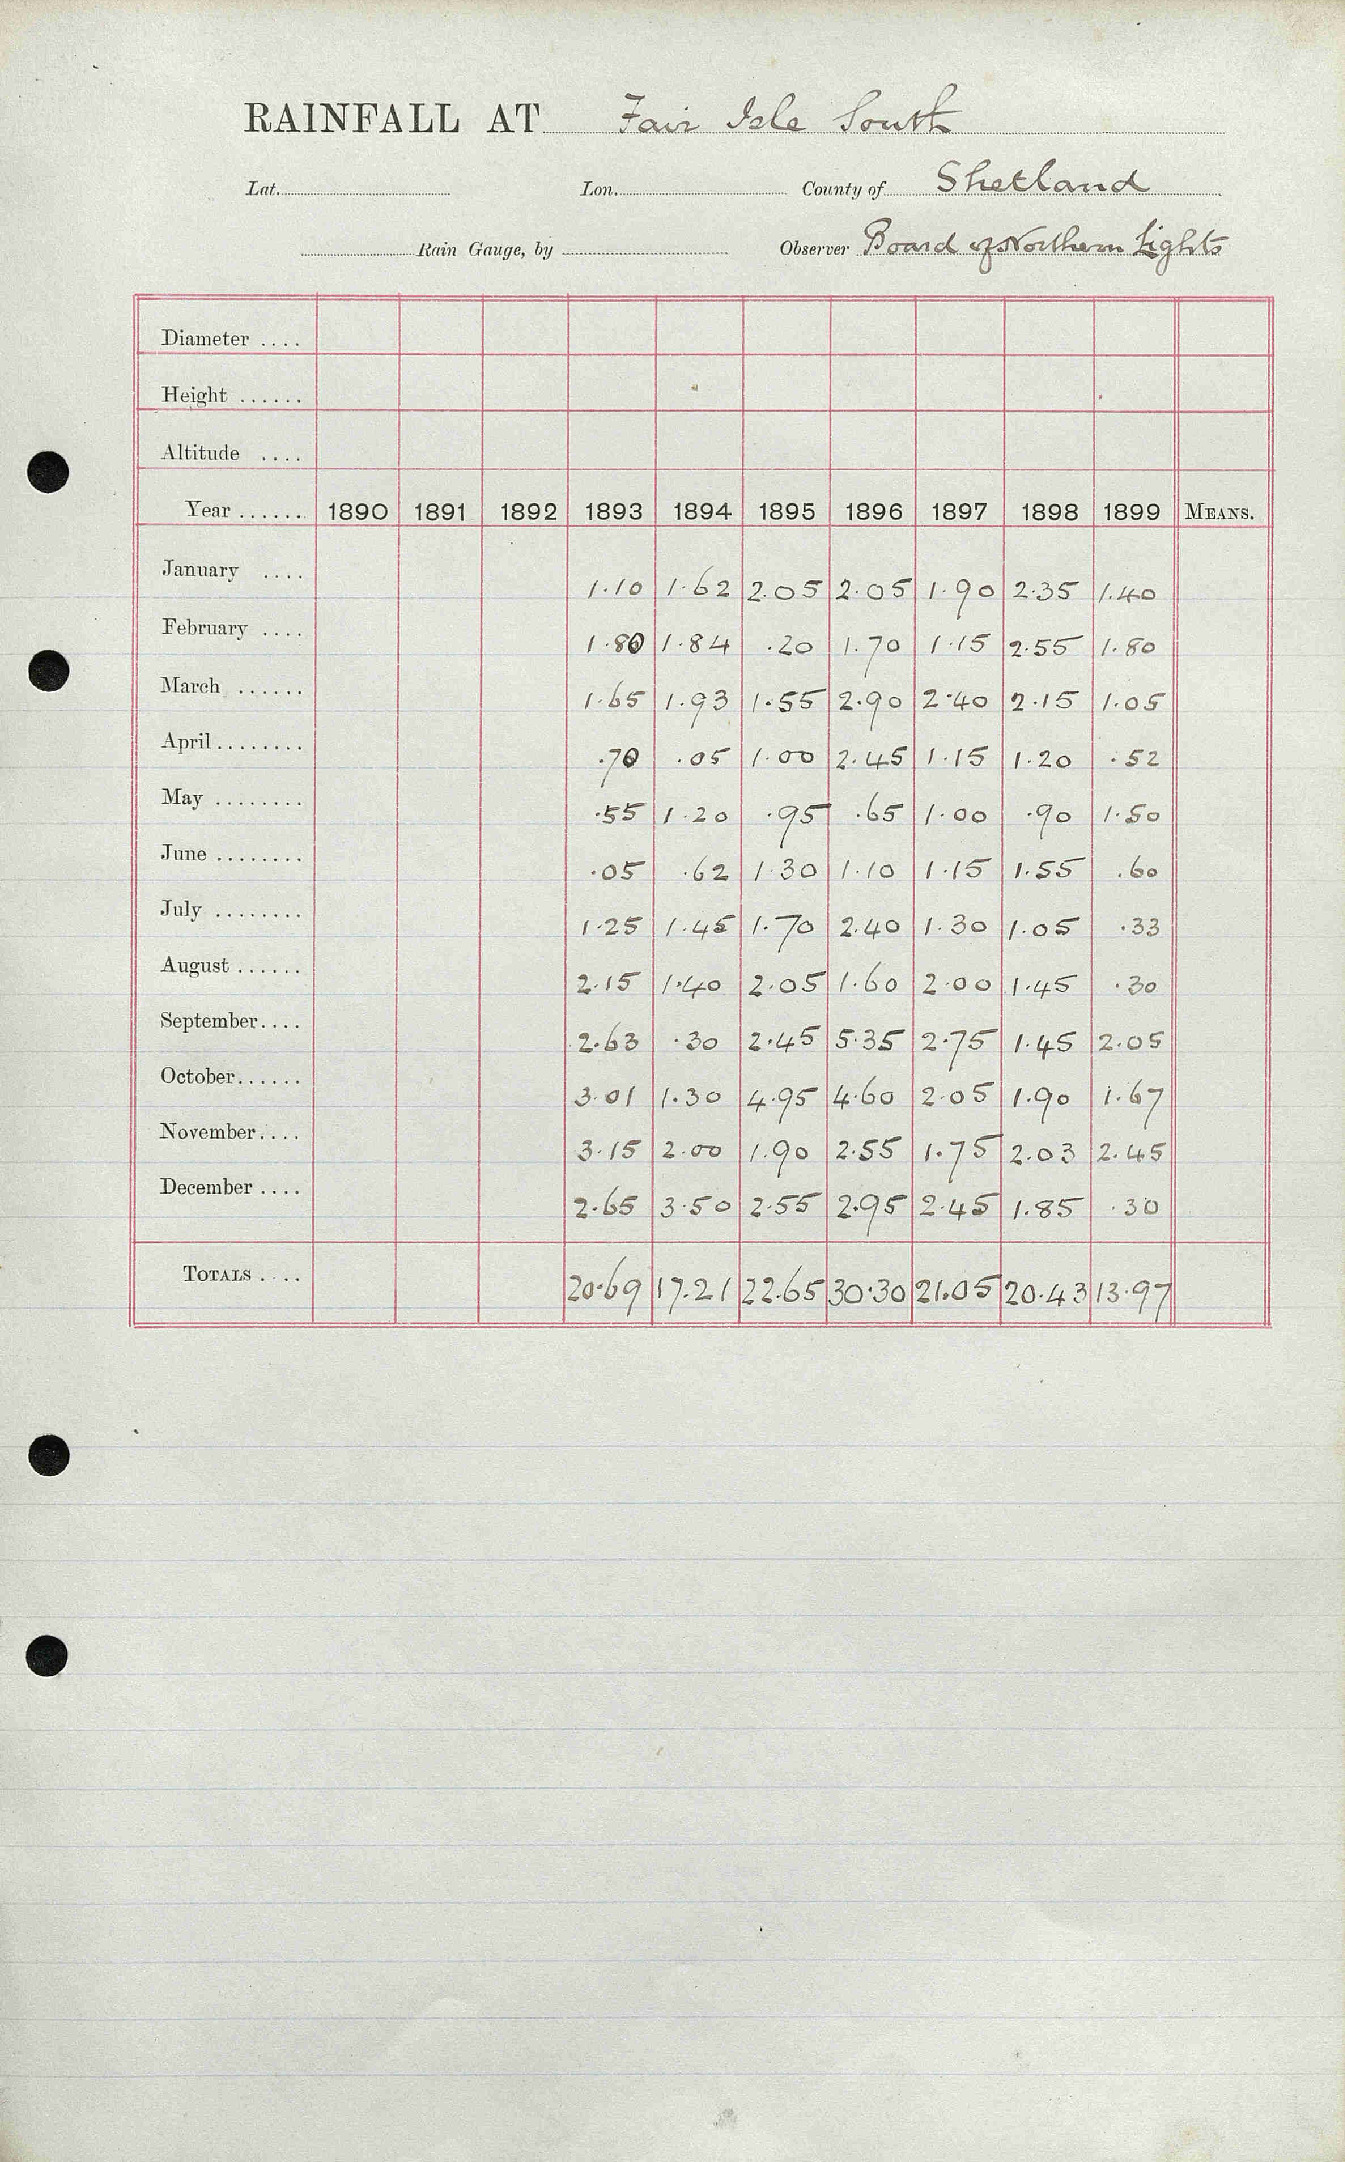 RAINFALL AT Fair Isle South
Lat. Lon. County of Shetland
Rain Gauge, by Observer Board of Northern Lights
Diameter ....
Height ......
Altitude ....
Year ...... 1890 1891 1892 1893 1894 1895 1896 1897 1898 1899 MEANS.
January .... 1.10 1.62 2.05 2.05 1.90 2.35 1.40
February .... 1.80 1.84 .20 1.70 1.15 2.55 1.80
March ...... 1.65 1.93 1.55 2.90 2.40 2.15 1.05
April ........ .70 .05 1.00 2.45 1.15 1.20 .52
May ........ .55 1.20 .95 .65 1.00 .90 1.50
June ........ .05 .62 1.30 1.10 1.15 1.55 .60
July ........ 1.25 1.45 1.70 2.40 1.30 1.05 .33
August ...... 2.15 1.40 2.05 1.60 2.00 1.45 .30
September.... 2.63 .30 2.45 5.35 2.75 1.45 2.05
October...... 3.01 1.30 4.95 4.60 2.05 1.90 1.67
November.... 3.15 2.00 1.90 2.55 1.75 2.03 2.45
December .... 2.65 3.50 2.55 2.95 2.45 1.85 .30
TOTALS .... 20.69 17.21 22.65 30.30 21.05 20.43 13.97